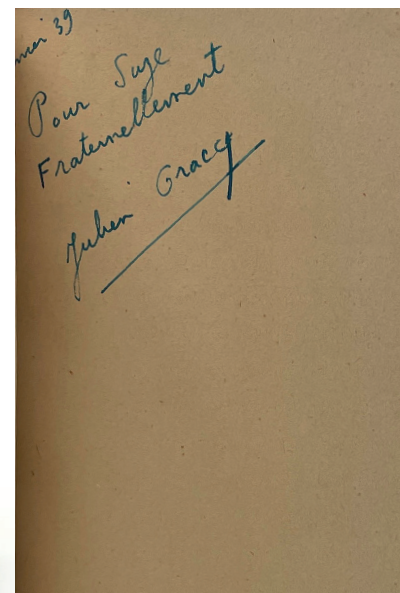 mai 39
Pour Suze
Fraternellement
Julien Gracq